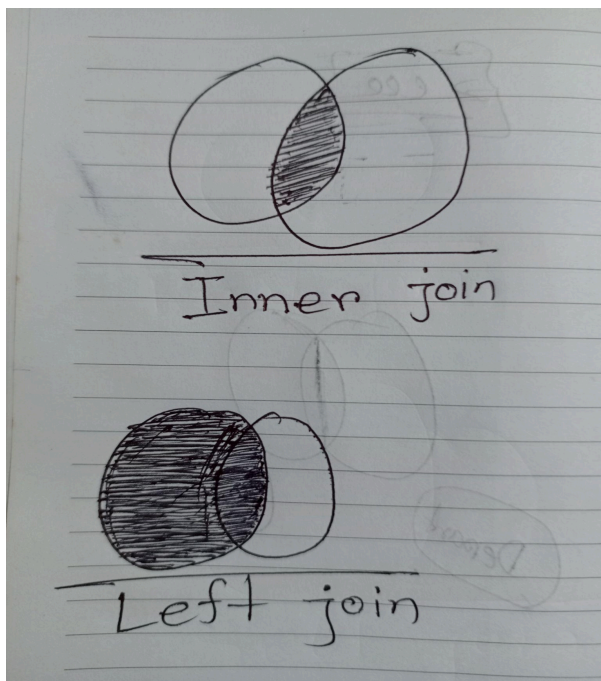 Inner join
Left join